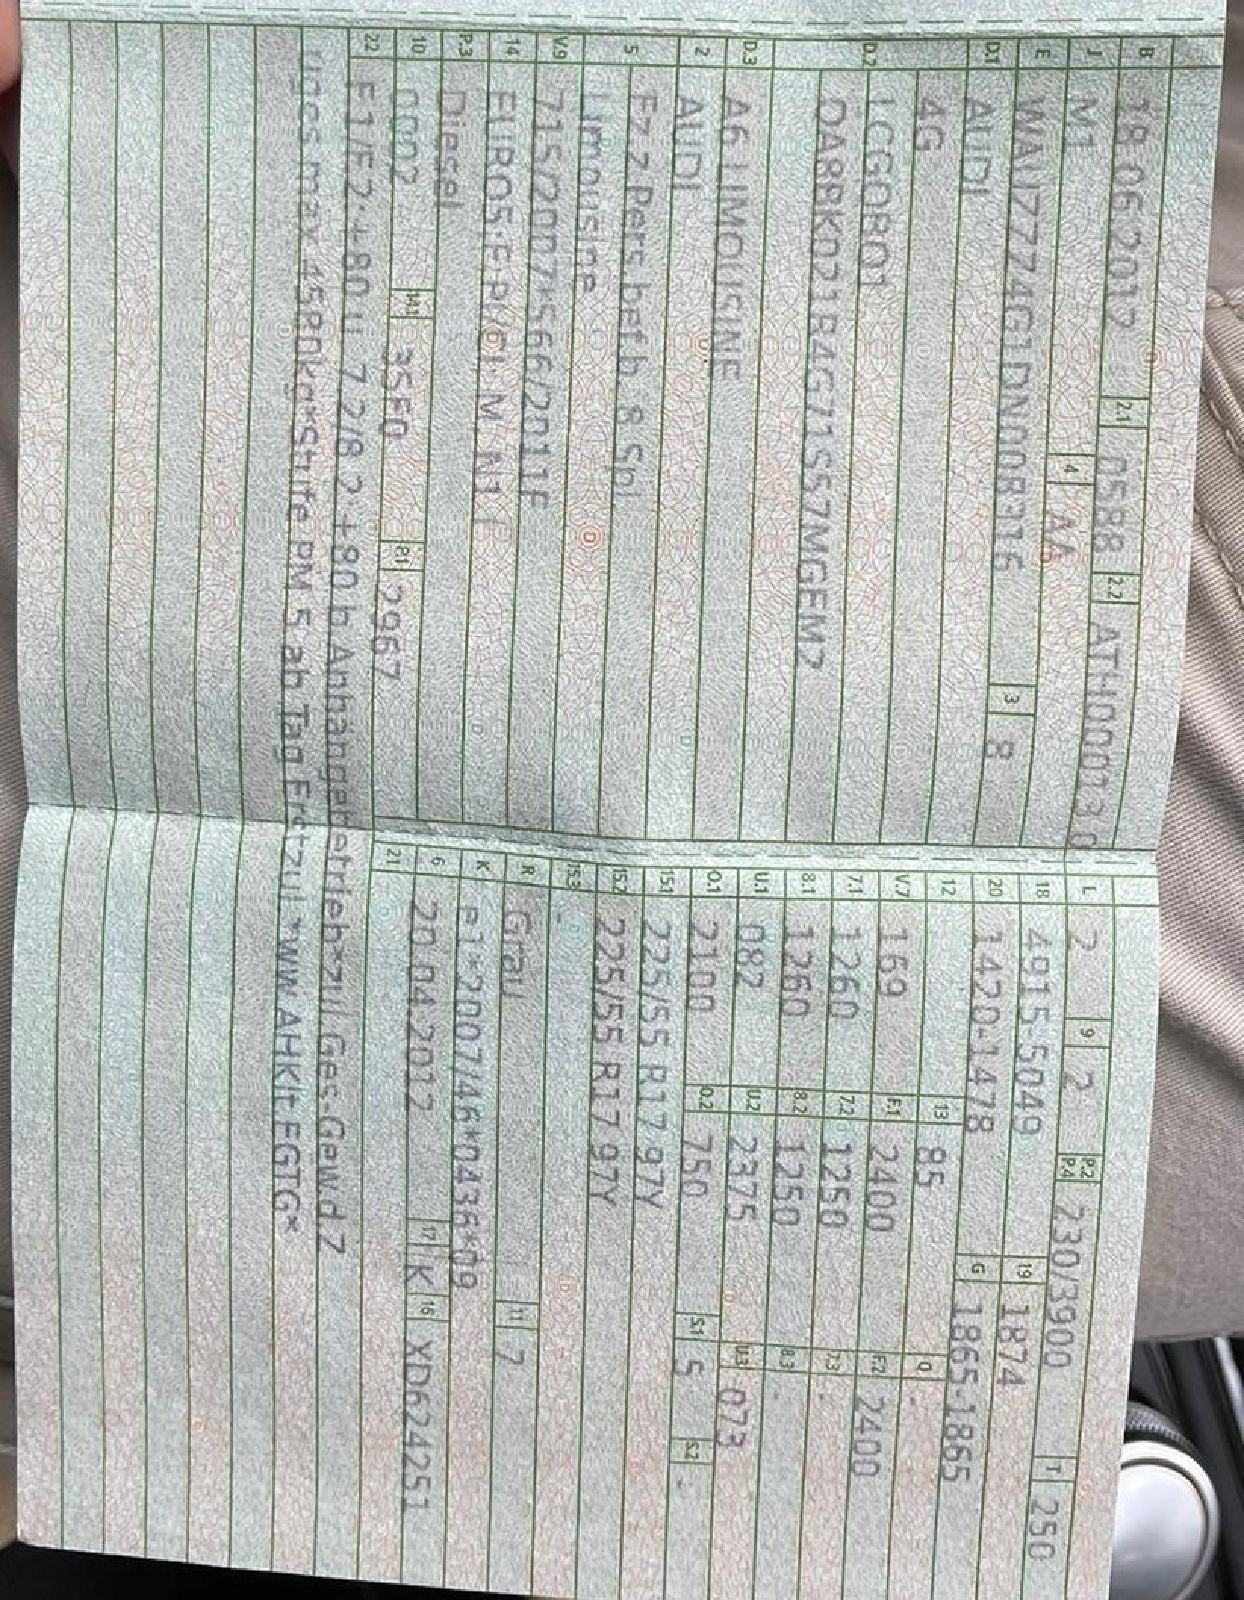 B 18.06.2012 2.1 0588 2.2 ATH00013 0
J M1 4 AA
E WAUZZZ4G1DN008316 3 8
D.1 AUDI
4G
D.2 LCGQRQ1
QA8BK0Z1B4G71S57MGEM2
D.3 A6 LIMOUSINE
2 AUDI
5 Fz.z.Pers.bef.b. 8 Spl.
Limousine
V.9 715/2007*566/2011F
14 EURO5;F;PI/CI; M, N1 I
P.3 Diesel
10 0002 14.1 35F0 P.1 2967
L 2 9 2 P.2 P.4 230/3900 T 250
18 4915-5049 19 1874
20 1420-1478 G 1865-1865
12 13 85 Q -
V.7 169 F.1 2400 F.2 2400
7.1 1260 7.2 1250 7.3 -
8.1 1260 8.2 1250 8.3 -
U.1 082 U.2 2375 U.3 073
O.1 2100 O.2 750 S.1 5 S.2 -
15.1 225/55 R17 97Y
15.2 225/55 R17 97Y
15.3 -
R Grau 11 7
K e1*2007/46*0436*09
6 20.04.2012 17 K 16 XD624251
21
22 F.1/F.2:+80 u. 7.2/8.2:+80 b.Anhängebetrieb*zul.Ges.Gew.d.Z
uges max.4580kg*Stufe PM 5 ab Tag Erstzul.*ww.AHK lt.EGTG*